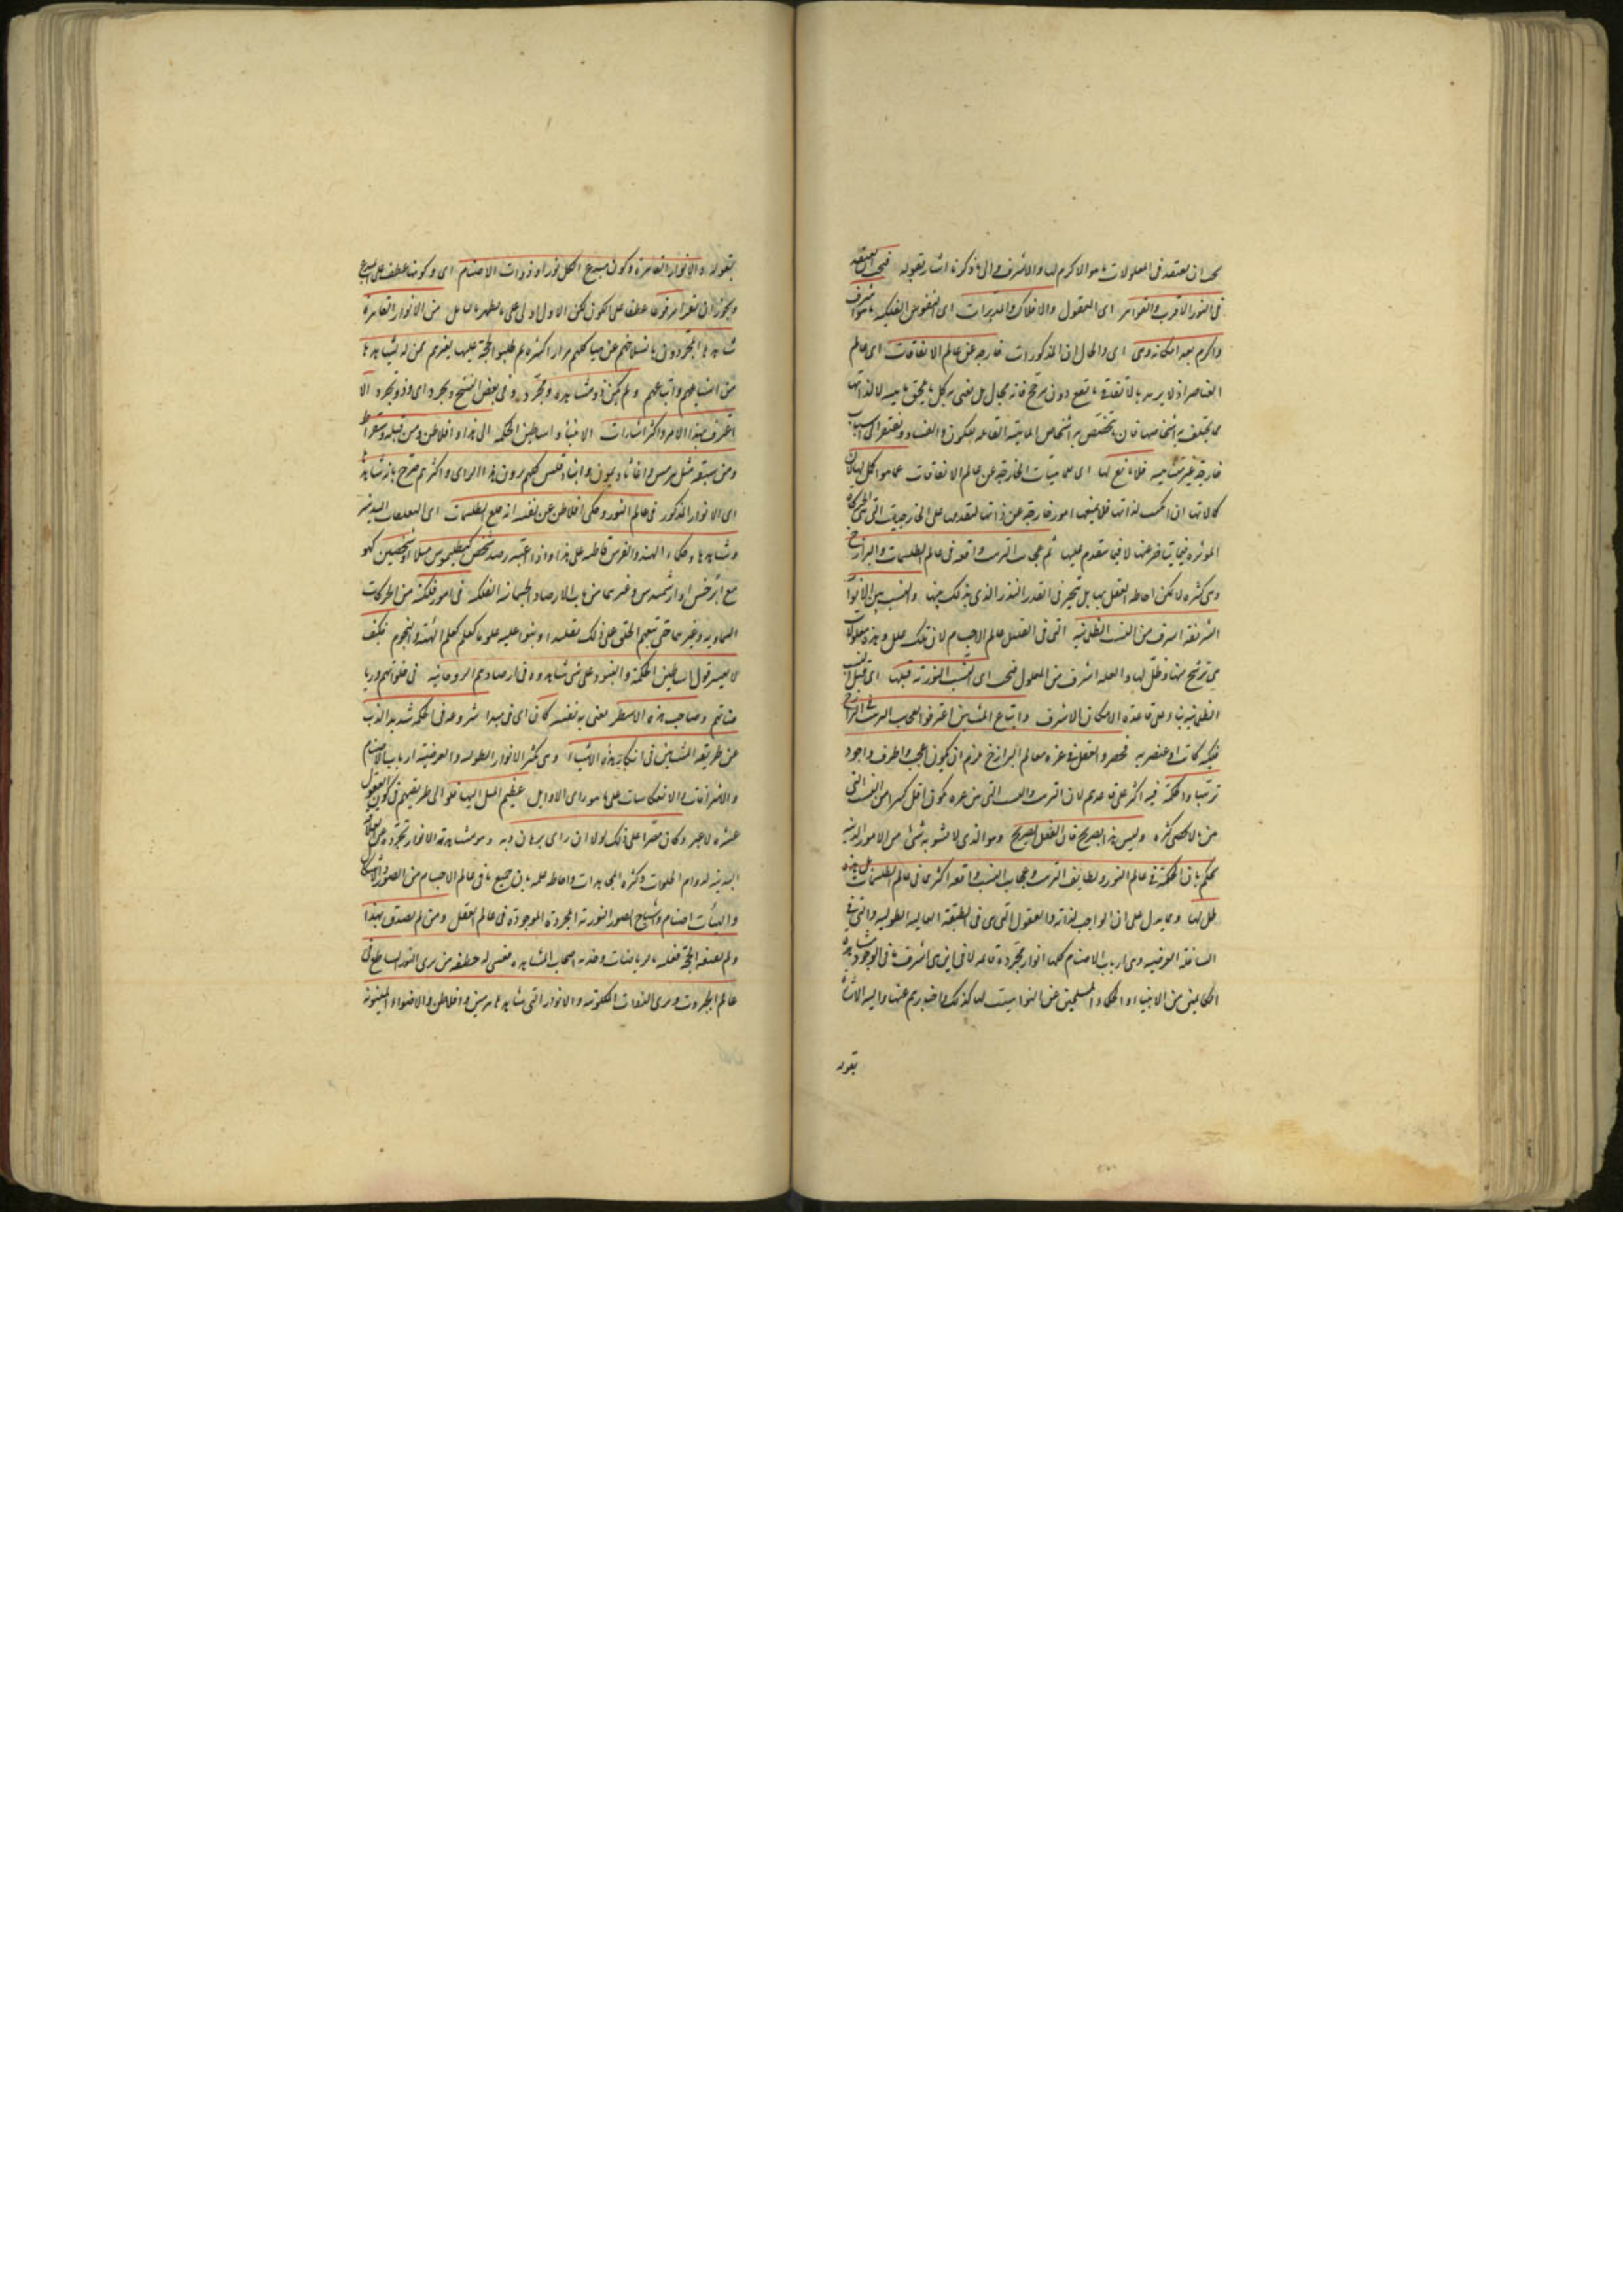 يجب ان يعتقد فى المعلولات ما هو الاكرم لها والاشرف والى ما ذكرنا اشار بقوله فيجب ان يعتقد
فى النور الاقرب والقواهر اى العقول والافلاك والمدبرات اى النفوس الفلكية ما هو اشرف
واكرم بعد امكانه وهى اى والحال ان المذكورات خارجة عن عالم الاتفاقات اى عالم
العناصر اذ لا يريد بالاتفاقى ما يقع دون مرجح فانه محال بل يعنى به كل ما يلحق ماهية لا لذاتها
مما يختلف به اشخاصها فان ما يتخصص به اشخاص الماهية القابلة للكون والفساد ويفتقر الى اسباب
خارجة غير متناهية فلا مانع لها اى للماهيات الخارجة عن عالم الاتفاقات عما هو اكمل لها لان
كمالاتها ان امكنت لذاتها فلا يمنعها امور خارجة عن ذاتها لتقدمها على الخارجيات التى هى الحركات
المؤثرة فيما يتأخر عنها لا فيما يتقدم عليها ثم عجائب الترتيب واقعة فى عالم الظلمات والبرازخ
وهى كثيرة لا يمكن احاطة العقل بها بل يتحير فى القدر النذر الذى يدرك منها والنسب بين الانوار
الشريفة اشرف من النسب الظلمانية التى فى القليل عالم الاجسام لان تلك علل وهذه معلولات
هى ترشح منها وظل لها والعلة اشرف من المعلول فيجب اى النسب النورية قبلها اى قبل النسب
الظلمانية بناء على قاعدة الامكان الاشرف واتباع المشائين اعترفوا بعجائب الترتيب فى البرازخ
فلكية كانت او عنصرية وحصروا العقول فى عشرة فعالم البرازخ يلزم ان يكون اعجب واطرف واجود
ترتيبا والحكمة فيه اكثر على قاعدتهم لان الترتيب والنسب التى بين عشرة يكون اقل كثيرا من النسب التى
بين ما لا يحصى كثرة وليس هذا بصحيح فان العقل الصريح وهو الذى لا يشوبه شئ من الامور البدنية
يحكم بان الحكمة فى عالم النور ولطائف الترتيب وعجايب النسب واقعة اكثر مما فى عالم الظلمات بل هذه
ظل لها ومما يدل على ان الواجب لذاته والعقول التى هى فى الطبقة العالية الطولية والتى فى
السافلة العرضية وهى ارباب الاصنام كلها انوار مجردة قائمة لا فى اين هى اشرف ما فى الوجود مشاهدة
الكاملين من الانبياء والحكماء المنسلخين عن النواسيت لها كذلك واخبارهم عنها واليه الاشارة
بقوله
بقوله والانوار القاهرة وكون مبدع الكل نورا وذوات الاصنام اى وكونها عطف على المبدع
ويجوز ان يقرأ مرفوعا عطفا على الكون لكن الاول اولى على ما يظهر بالتأمل من الانوار القاهرة
شاهدها المجردون بانسلاخهم عن هياكلهم مرارا كثيرة ثم طلبوا الحجة عليها لغيرهم ممن لم يشاهدها
من اشياعهم واتباعهم ولم يكن ذو مشاهدة ومجرد وفى بعض النسخ وتجرد اى وذو تجرد الا
اعترف بهذا الامر واكثر اشارات الانبياء واساطين الحكمة الى هذا وافلاطون ومن قبله سقراط
ومن سبقه مثل هرمس واغاثاديمون وانباذقلس كلهم يرون هذا الرأى واكثرهم صرح بانه شاهدها
اى الانوار المذكور فى عالم النور وحكى افلاطن عن نفسه انه خلع الظلمات اى التعلقات البدنية
وشاهدها وحكماء الهند والفرس قاطبة على هذا واذا اعتبر رصد شخص كبطليموس مثلا او شخصين كهو
مع ابرخس او ارشميدس وغيرهما من ارباب الارصاد الجسمانية الفلكية فى امور فلكية من الحركات
السماوية وغيرها حتى تبعهم الخلق على ذلك تقليدا وبنوا عليه علوما كعلم الهيئة والنجوم فكيف
لا يعتبر قول اساطين الحكمة والنبوة على شئ شاهدوه فى ارصادهم الروحانية فى خلواتهم ورياضاتهم
وصاحب هذه الاسطر يعنى به نفسه كان اى فى مبدأ شروعه فى الحكمة شديد الذب
عن طريقة المشائين فى انكار هذه الاشياء وهى كثرة الانوار الطولية والعرضية ارباب الاصنام
والاشراقات والانعكاسات على ما هو رأى الاوايل عظيم الميل اليها نحو الى طريقتهم فى كون العقول
عشرة لا غير وكان مصرا على ذلك لولا ان رأى برهان ربه وهو مشاهدته الانوار بتجرده عن العلائق
البدنية لدوام الخلوات وكثرة المجاهدات واحاطة علمه بان جميع ما فى عالم الاجسام من الصور والاشكال
والهيئات اصنام واشباح للصور النورية المجردة الموجودة فى عالم العقل ومن لم يصدق بهذا
ولم يقنعه الحجة فعليه بالرياضات وخدمة اصحاب المشاهدة فعسى له خطفة من يرى النور الساطع فى
عالم الجبروت ويرى الذوات الملكوتية والانوار التى شاهدها هرمس وافلاطن والاضواء المينوية